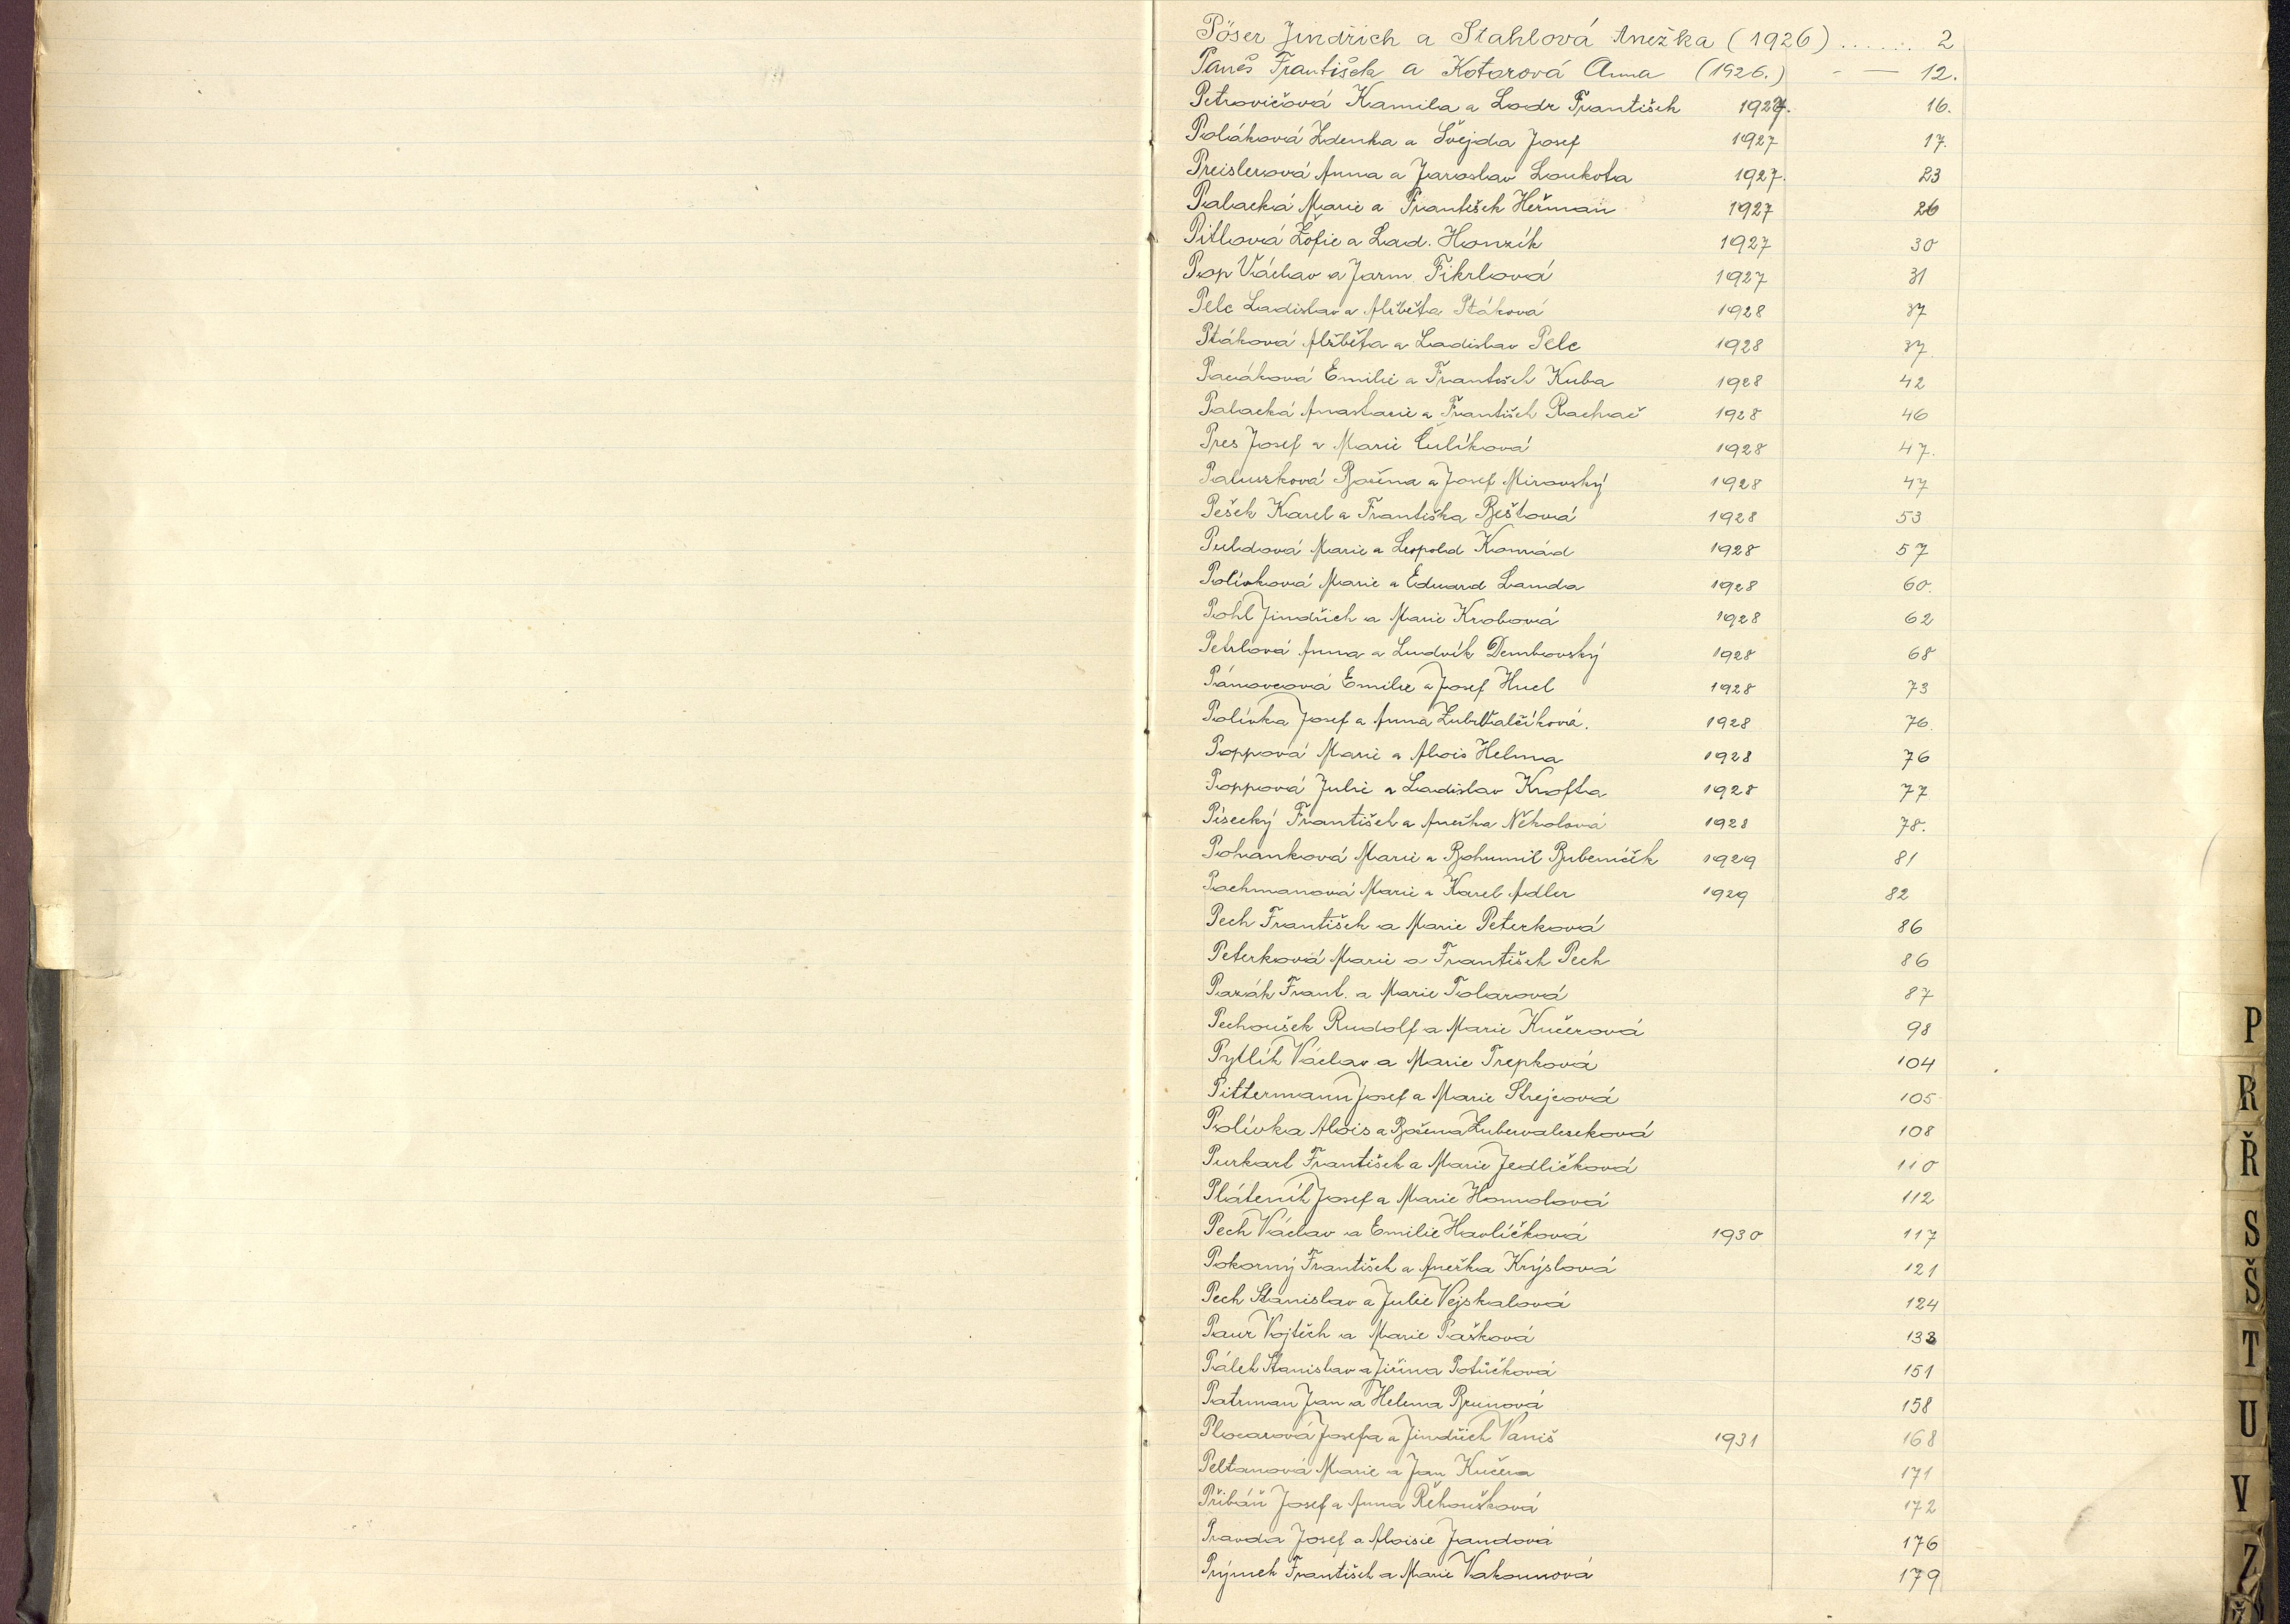 Pöser Jindřich a Stahlová Anežka (1926) ...... 2
Paneš František a Kotorová Anna (1926.) - — 12.
Petrovičová Kamila a Lodr František 1927. 16.
Poláková Zdenka a Švejda Josef 1927 17.
Preislerová Anna a Jaroslav Loukota 1927. 23
Palacká Marie a František Heřman 1927 26
Pitlová Žofie a Lad. Honzík 1927 30
Pop Václav a Jarm. Fikrlová 1927 31
Pelc Ladislav a Alžběta Ptáková 1928 37
Ptáková Alžběta a Ladislav Pelc 1928 37.
Pacáková Emilie a František Kuba 1928 42
Palacká Anastazie a František Rachač 1928 46
Pres Josef a Marie Čulíková 1928 47.
Paluszková Božena a Josef Mirovský 1928 47
Pešek Karel a Františka Beštová 1928 53
Puldová Marie a Leopold Konrád 1928 57
Polívková Marie a Eduard Landa 1928 60.
Pohl Jindřich a Marie Krobová 1928 62
Petrlová Anna a Ludvík Dembovský 1928 68
Pánovcová Emilie a Josef Hucl 1928 73
Polívka Josef a Anna 1928 76.
Poppová Marie a Alois Helma 1928 76
Poppová Julie a Ladislav Krofta 1928 77
Písecký František a Anežka Několová 1928 78.
Pohanková Marie a Bohumil Bubeníček 1929 81
Pachmanová Marie a Karel Adler 1929 82
Pech František a Marie Peterková 86
Peterková Marie a František Pech 86
Pazák Frant. a Marie Tolarová 87
Pechoušek Rudolf a Marie Kučerová 98
Pytlík Václav a Marie Trepková 104
Pittermann Josef a Marie Strejcová 105
Polívka Alois a Božena Zubervalczková 108
Purkart František a Marie Jedličková 110
Pláteník Josef a Marie Homolová 112
Pech Václav a Emilie Havlíčková 1930 117
Pokorný František a Anežka Krýslová 121
Pech Stanislav a Julie Vejskalová 124
Paur Vojtěch a Marie Pašková 133
Pálek Stanislav a Jiřina Potůčková 151
Patrman Jan a Helena Brunová 158
Plocarová Josefa a Jindřich Vaniš 1931 168
Peltanová Marie a Jan Kučera 171
Přibáň Josef a Anna Řehoušková 172
Pravda Josef a Aloisie Jandová 176
Prýmek František a Marie Vakounová 179
P
R
Ř
S
Š
T
U
V
Z
Ž